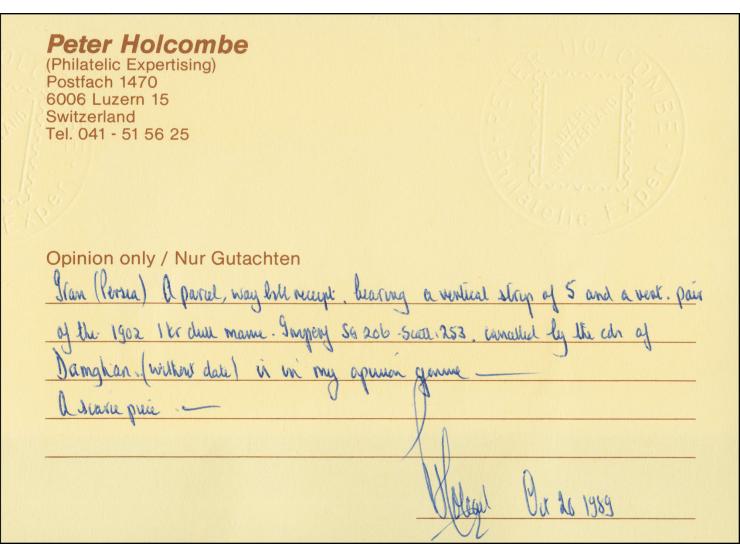 Peter Holcombe
(Philatelic Expertising)
Postfach 1470
6006 Luzern 15
Switzerland
Tel. 041 - 51 56 25
PETER HOLCOMBE
LUZERN
SWITZERLAND
Philatelic Exper
Opinion only / Nur Gutachten
Iran (Persia) A parcel, way bill receipt. bearing a vertical strip of 5 and a vert. pair
of the 1902 1 kr dull mauve. Imperf SG 206 Scott 253. cancelled by the cds of
Damghan. (without date) is in my opinion genuine
A scarce piece.
Oct 20 1989